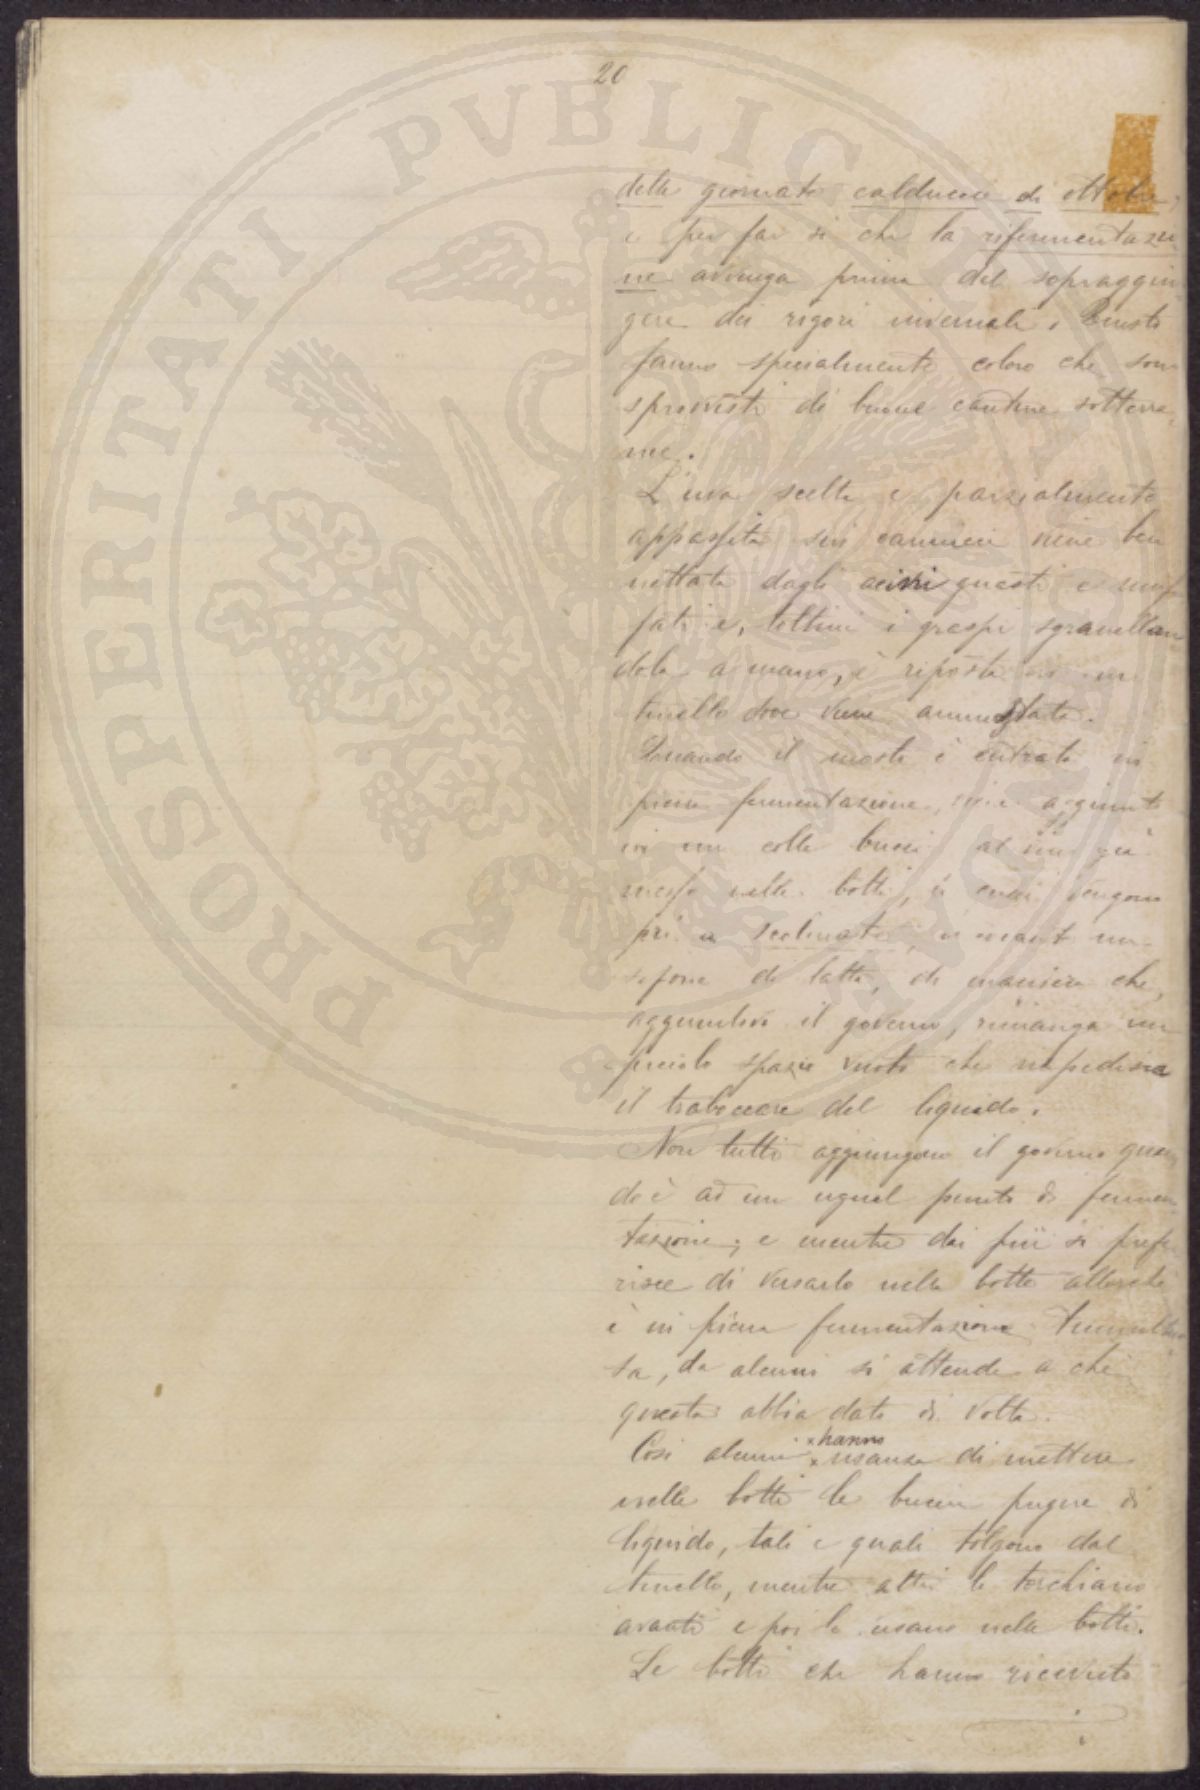 20
delle giornate calduccie di ottobre,
e per far si che la rifermentazio
ne avvenga prima del sopraggiun
gere dei rigori invernali. Questo
fanno specialmente coloro che sono
sprovvisti di buone cantine sotterra
nee.
L'uva scelta e parzialmente
appassita sui cannicci viene ben
nettata dagli acini guasti e muf
fati e, toltine i graspi sgranellan
dola a mano, è riposta in un
tinello dove viene ammostata.
Quando il mosto è entrato in
piena fermentazione, viene aggiunto
in un colle bucce al vino già
messo nelle botti, le quali vengono
pri a scolmate, mediante un
sifone di latta, di maniera che,
aggiuntovi il governo, rimanga un
piccolo spazio vuoto che impedisca
il traboccare del liquido.
Non tutti aggiungono il governo quan
do è ad un ugual punto di fermen
tazione; e mentre dai più si prefe
risce di versarlo nella botte allorchè
è in piena fermentazione tumultuo
sa, da alcuni si attende a che
questa abbia dato di volta.
hanno
Così alcuni usanza di mettere
nelle botti le buccie pregne di
liquido, tali e quali tolgono dal
tinello, mentre altri le torchiano
avanti e poi le usano nelle botti.
Le botti che hanno ricevuto
i
PROSPERITATI PVBLICAE